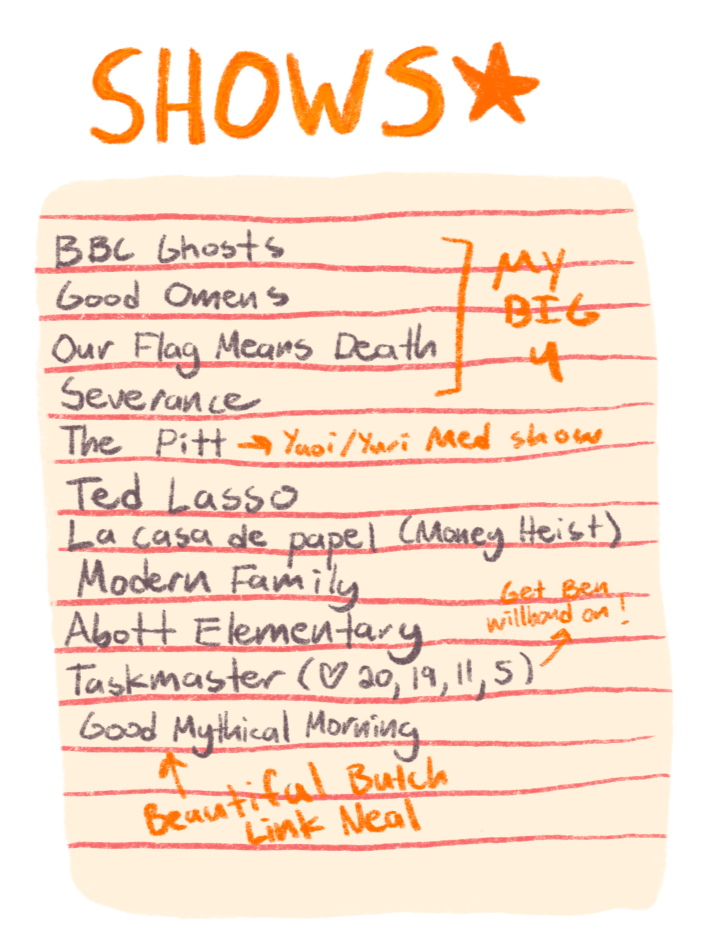 SHOWS★
BBC Ghosts
Good Omens
Our Flag Means Death
Severance
MY
BIG
4
The Pitt → Yaoi/Yuri Med show
Ted Lasso
La casa de papel (Money Heist)
Modern Family
Abott Elementary
Get Ben
willbond on!
Taskmaster (♡ 20, 19, 11, 5)
Good Mythical Morning
Beautiful Butch
Link Neal